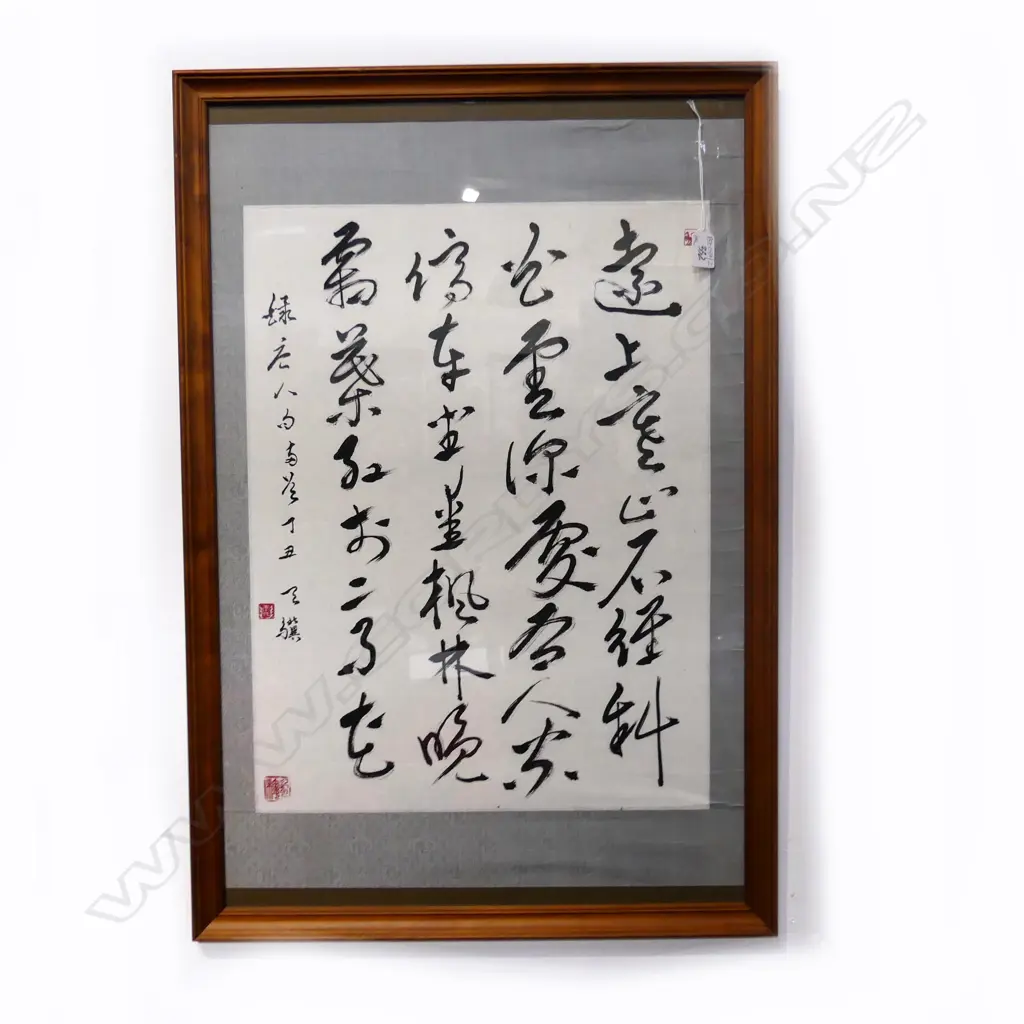 遠上寒山石徑斜
白雲深處有人家
停車坐愛楓林晚
霜葉紅於二月花
録唐人句 丁丑 天驥
WWW.CORDYS.CO.NZ